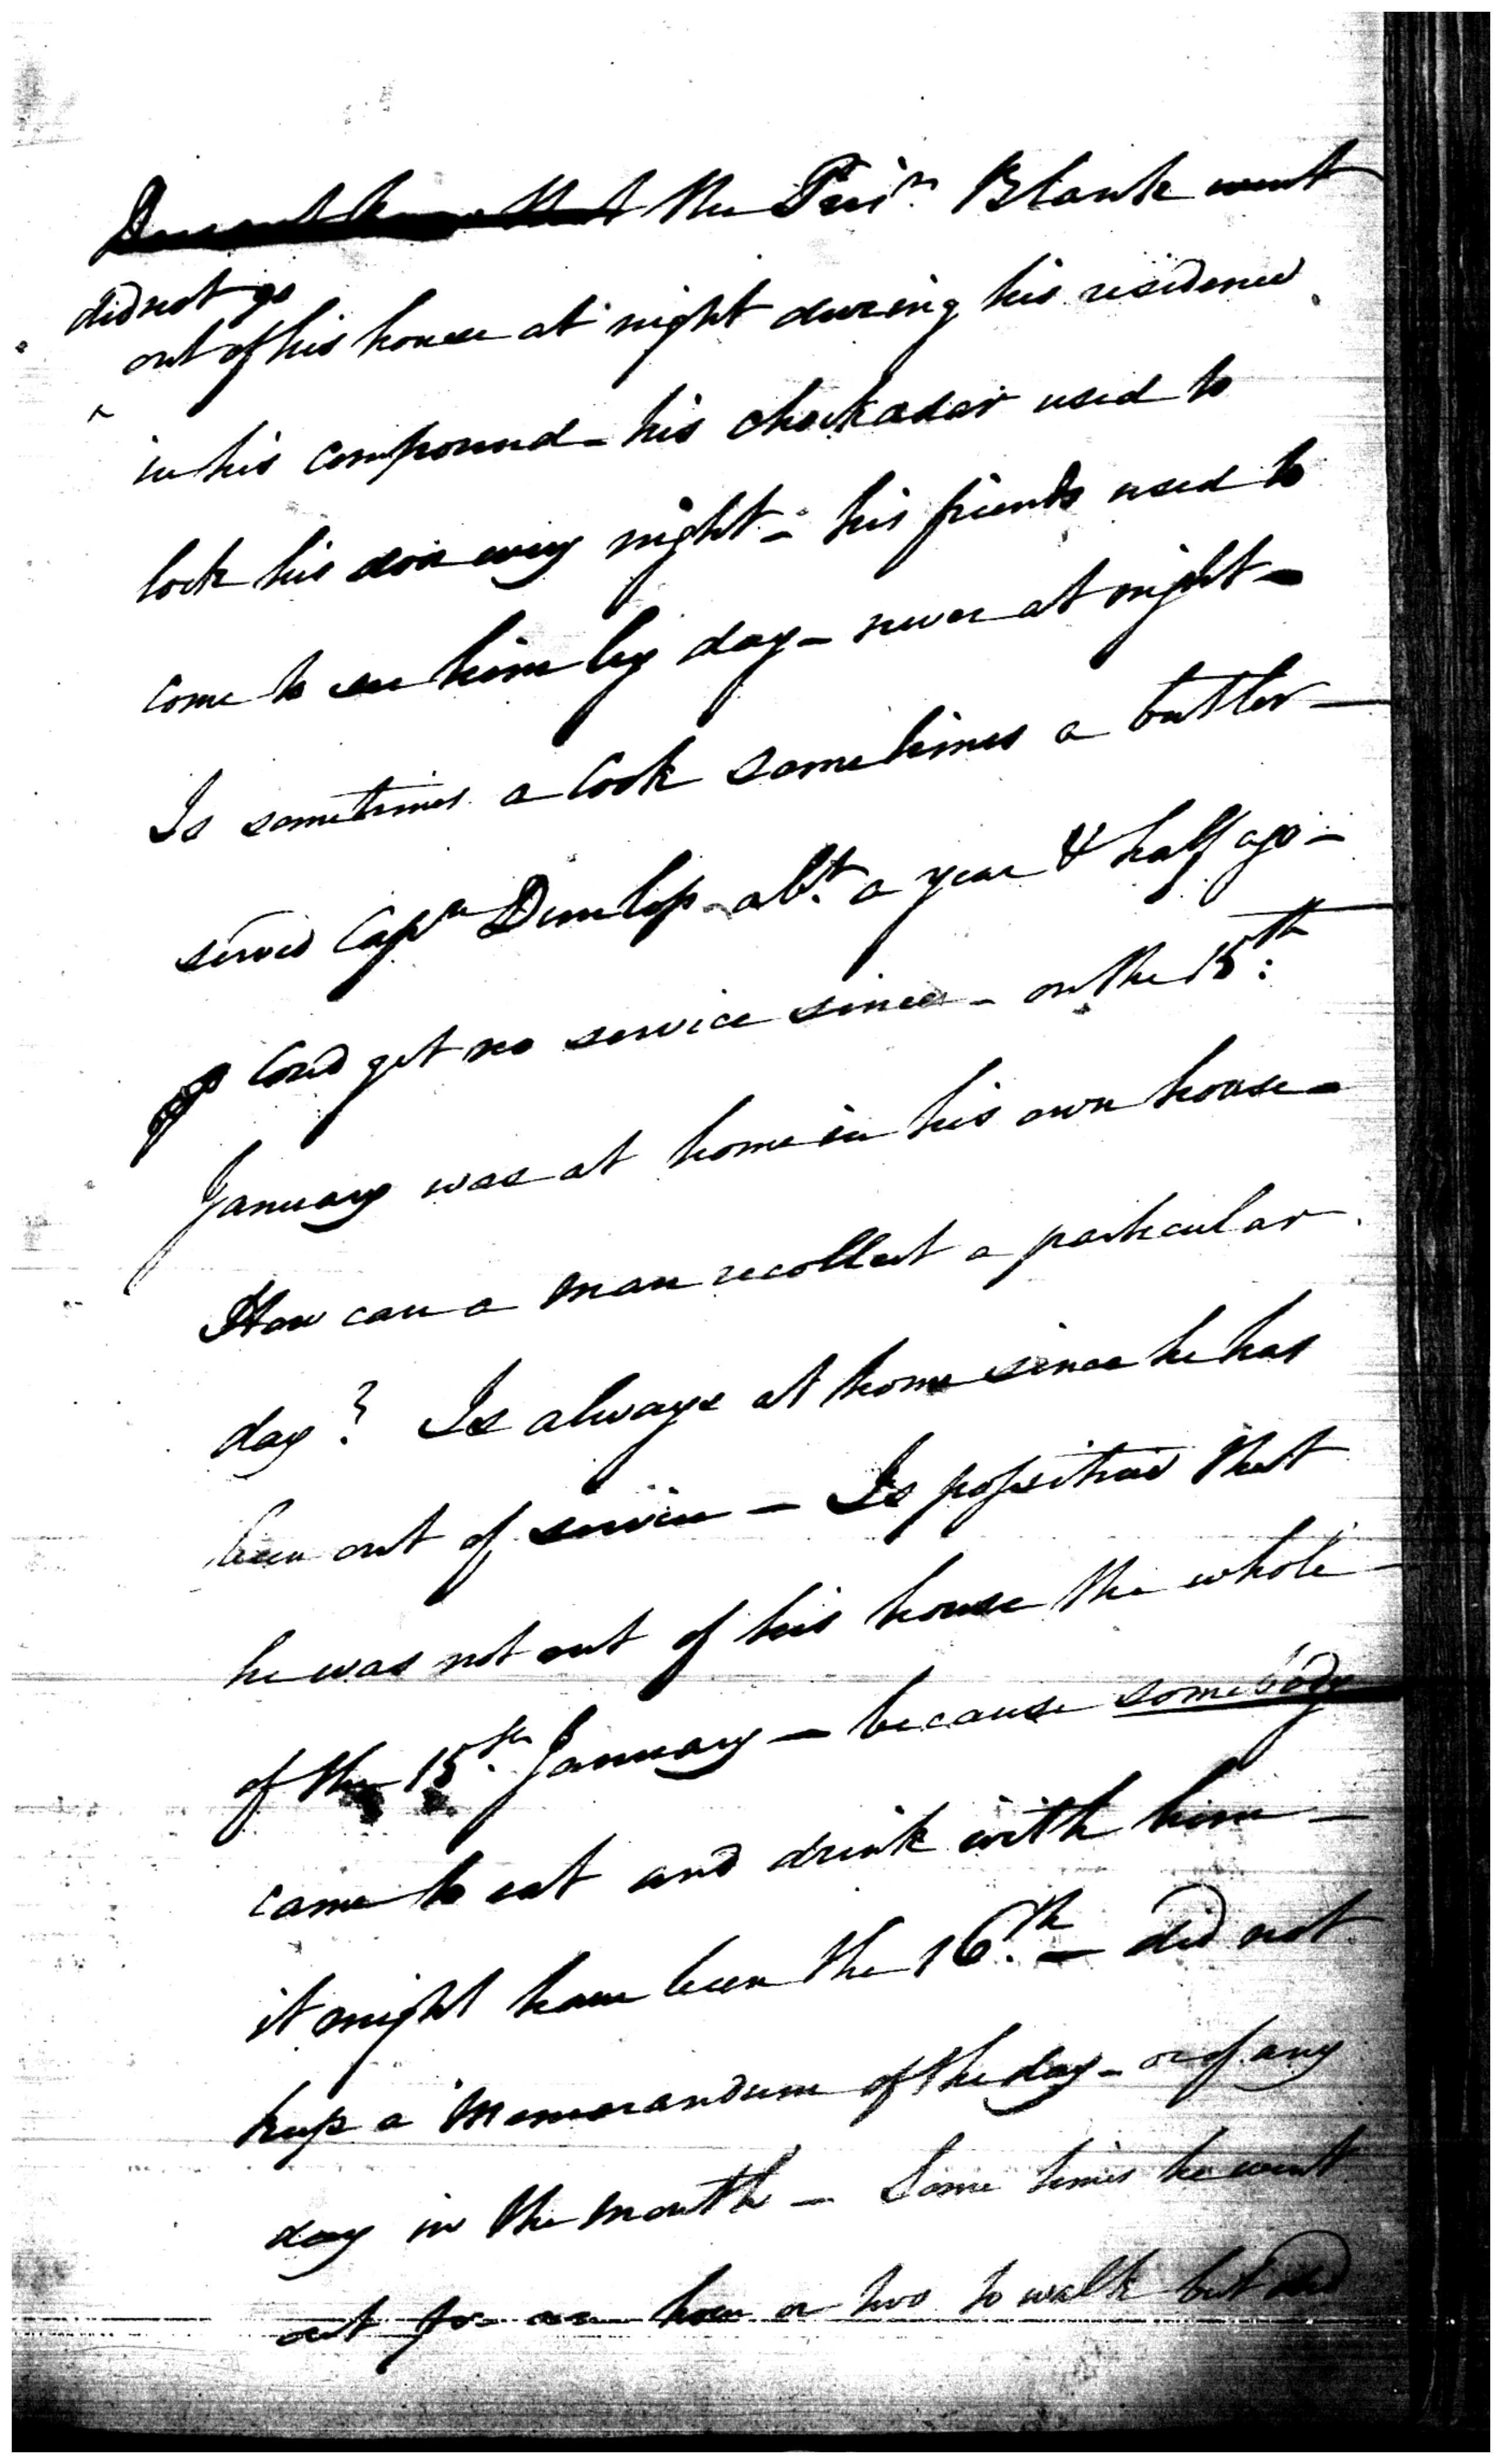 the Prisr. Blank went
did not go
out of his house at night during his residence
in his compound - his chokadar used to
lock his door every night - his friends used to
come to see him by day - never at night -
Is sometimes a Cook sometimes a butler -
served Capn Dunlop abt. a year & half ago -
Coud get no service since - on the 15th:
January was at home in his own house -
How can a man recollect a particular
day? Is always at home since he has
been out of service - Is possitive that
he was not out of his house the whole
of the 15th. January - because somebody
came to eat and drink with him -
it might have been the 16th. - did not
keep a Memorandum of the day - or of any
day in the month - Some times he went
out for an hour or two to walk but did